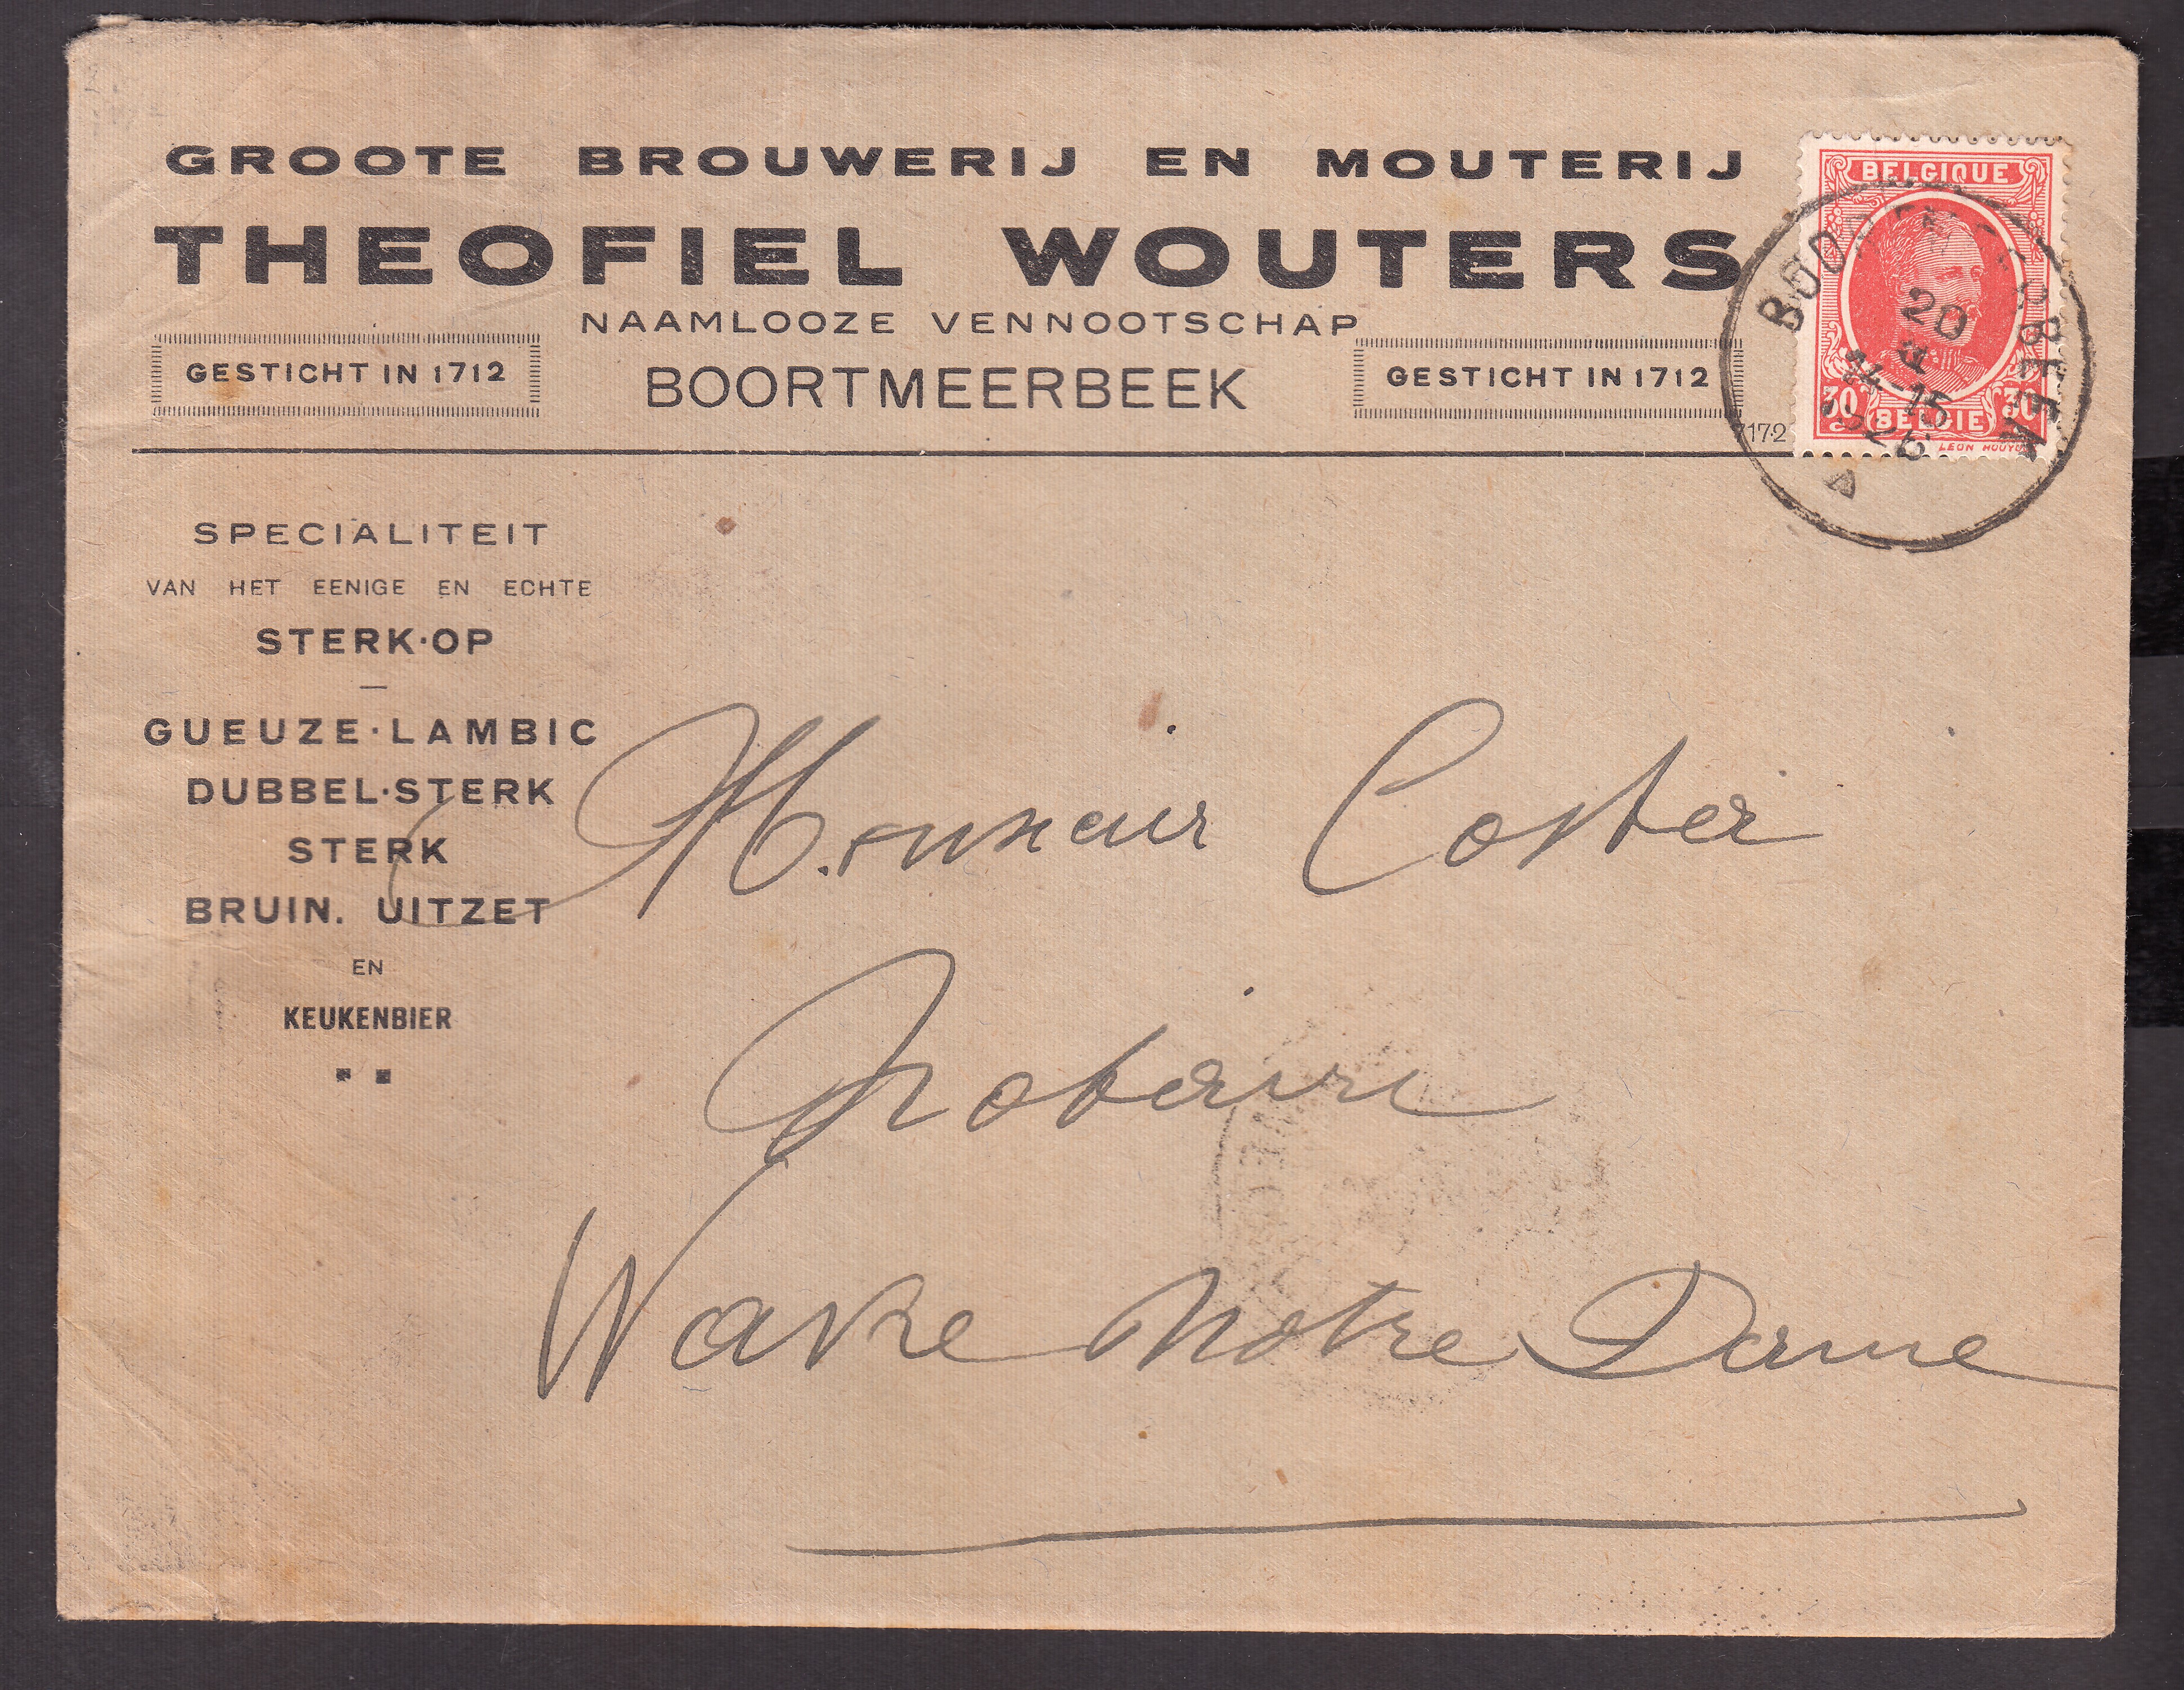 GROOTE BROUWERIJ EN MOUTERIJ
THEOFIEL WOUTERS
NAAMLOOZE VENNOOTSCHAP
GESTICHT IN 1712
BOORTMEERBEEK
GESTICHT IN 1712
7172
BELGIQUE
30 BELGIE 30
LEON HOUYOUX
BOORTMEERBEEK
20
15
A
SPECIALITEIT
VAN HET EENIGE EN ECHTE
STERK·OP
GUEUZE·LAMBIC
DUBBEL·STERK
STERK
BRUIN. UITZET
EN
KEUKENBIER
Monsieur Coster
Notaire
Wavre Notre Dame